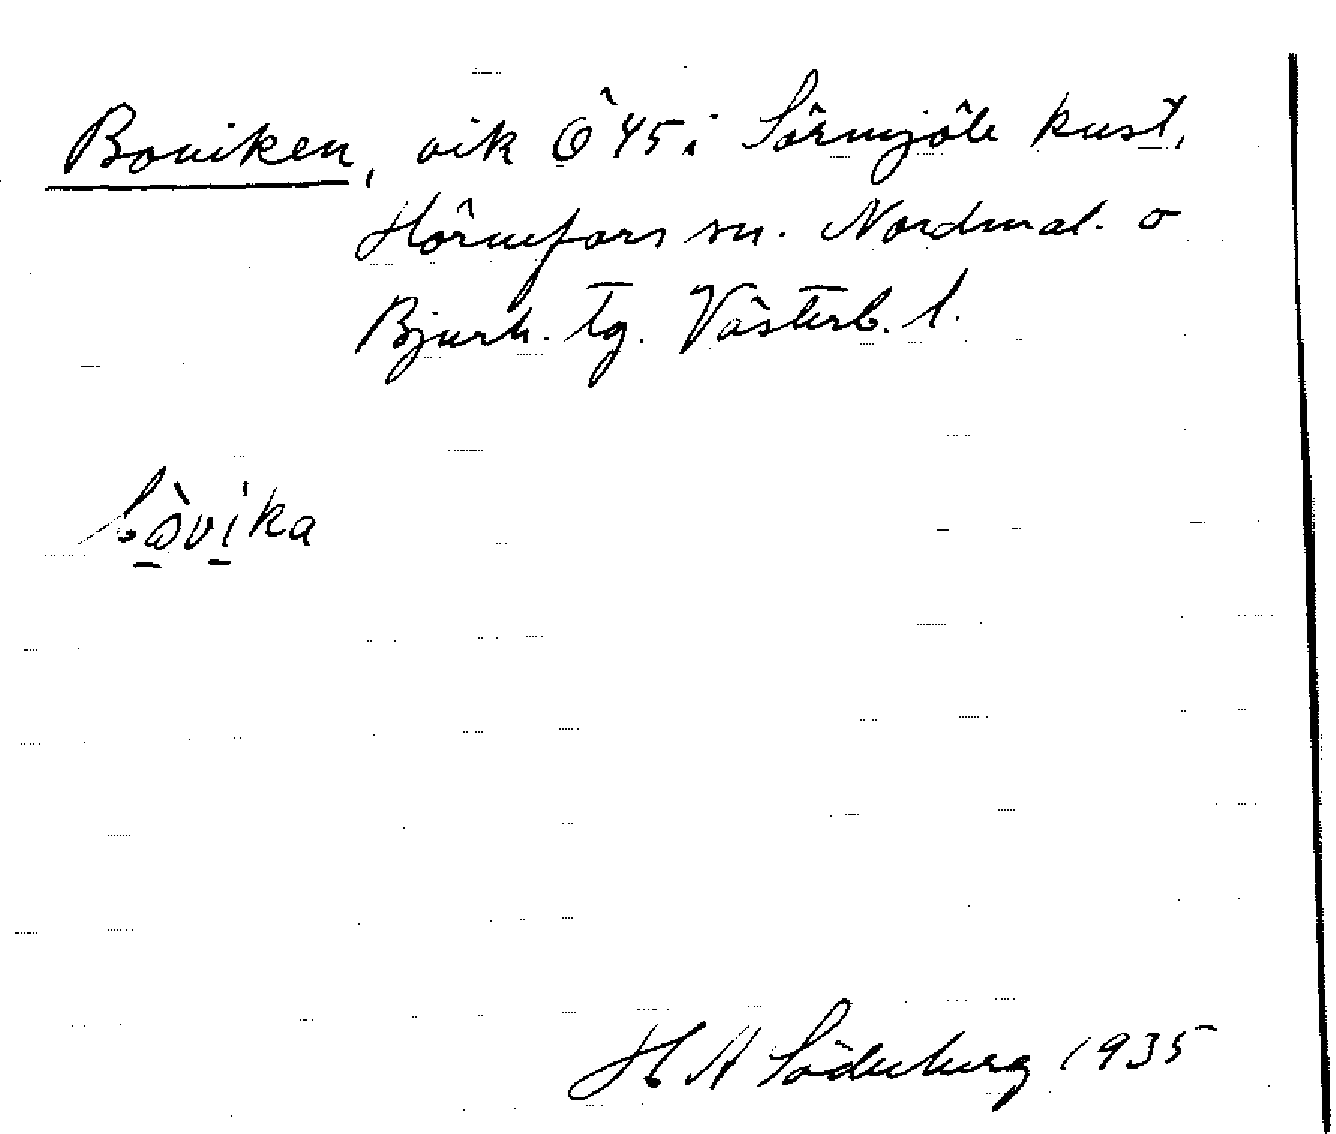 Boviken, vik Ö 45 i Sörmjöle kust,
Hörnefors sn. Nordmal. o
Bjurh. tg. Västerb. l.
bòvika
H A Söderberg 1935